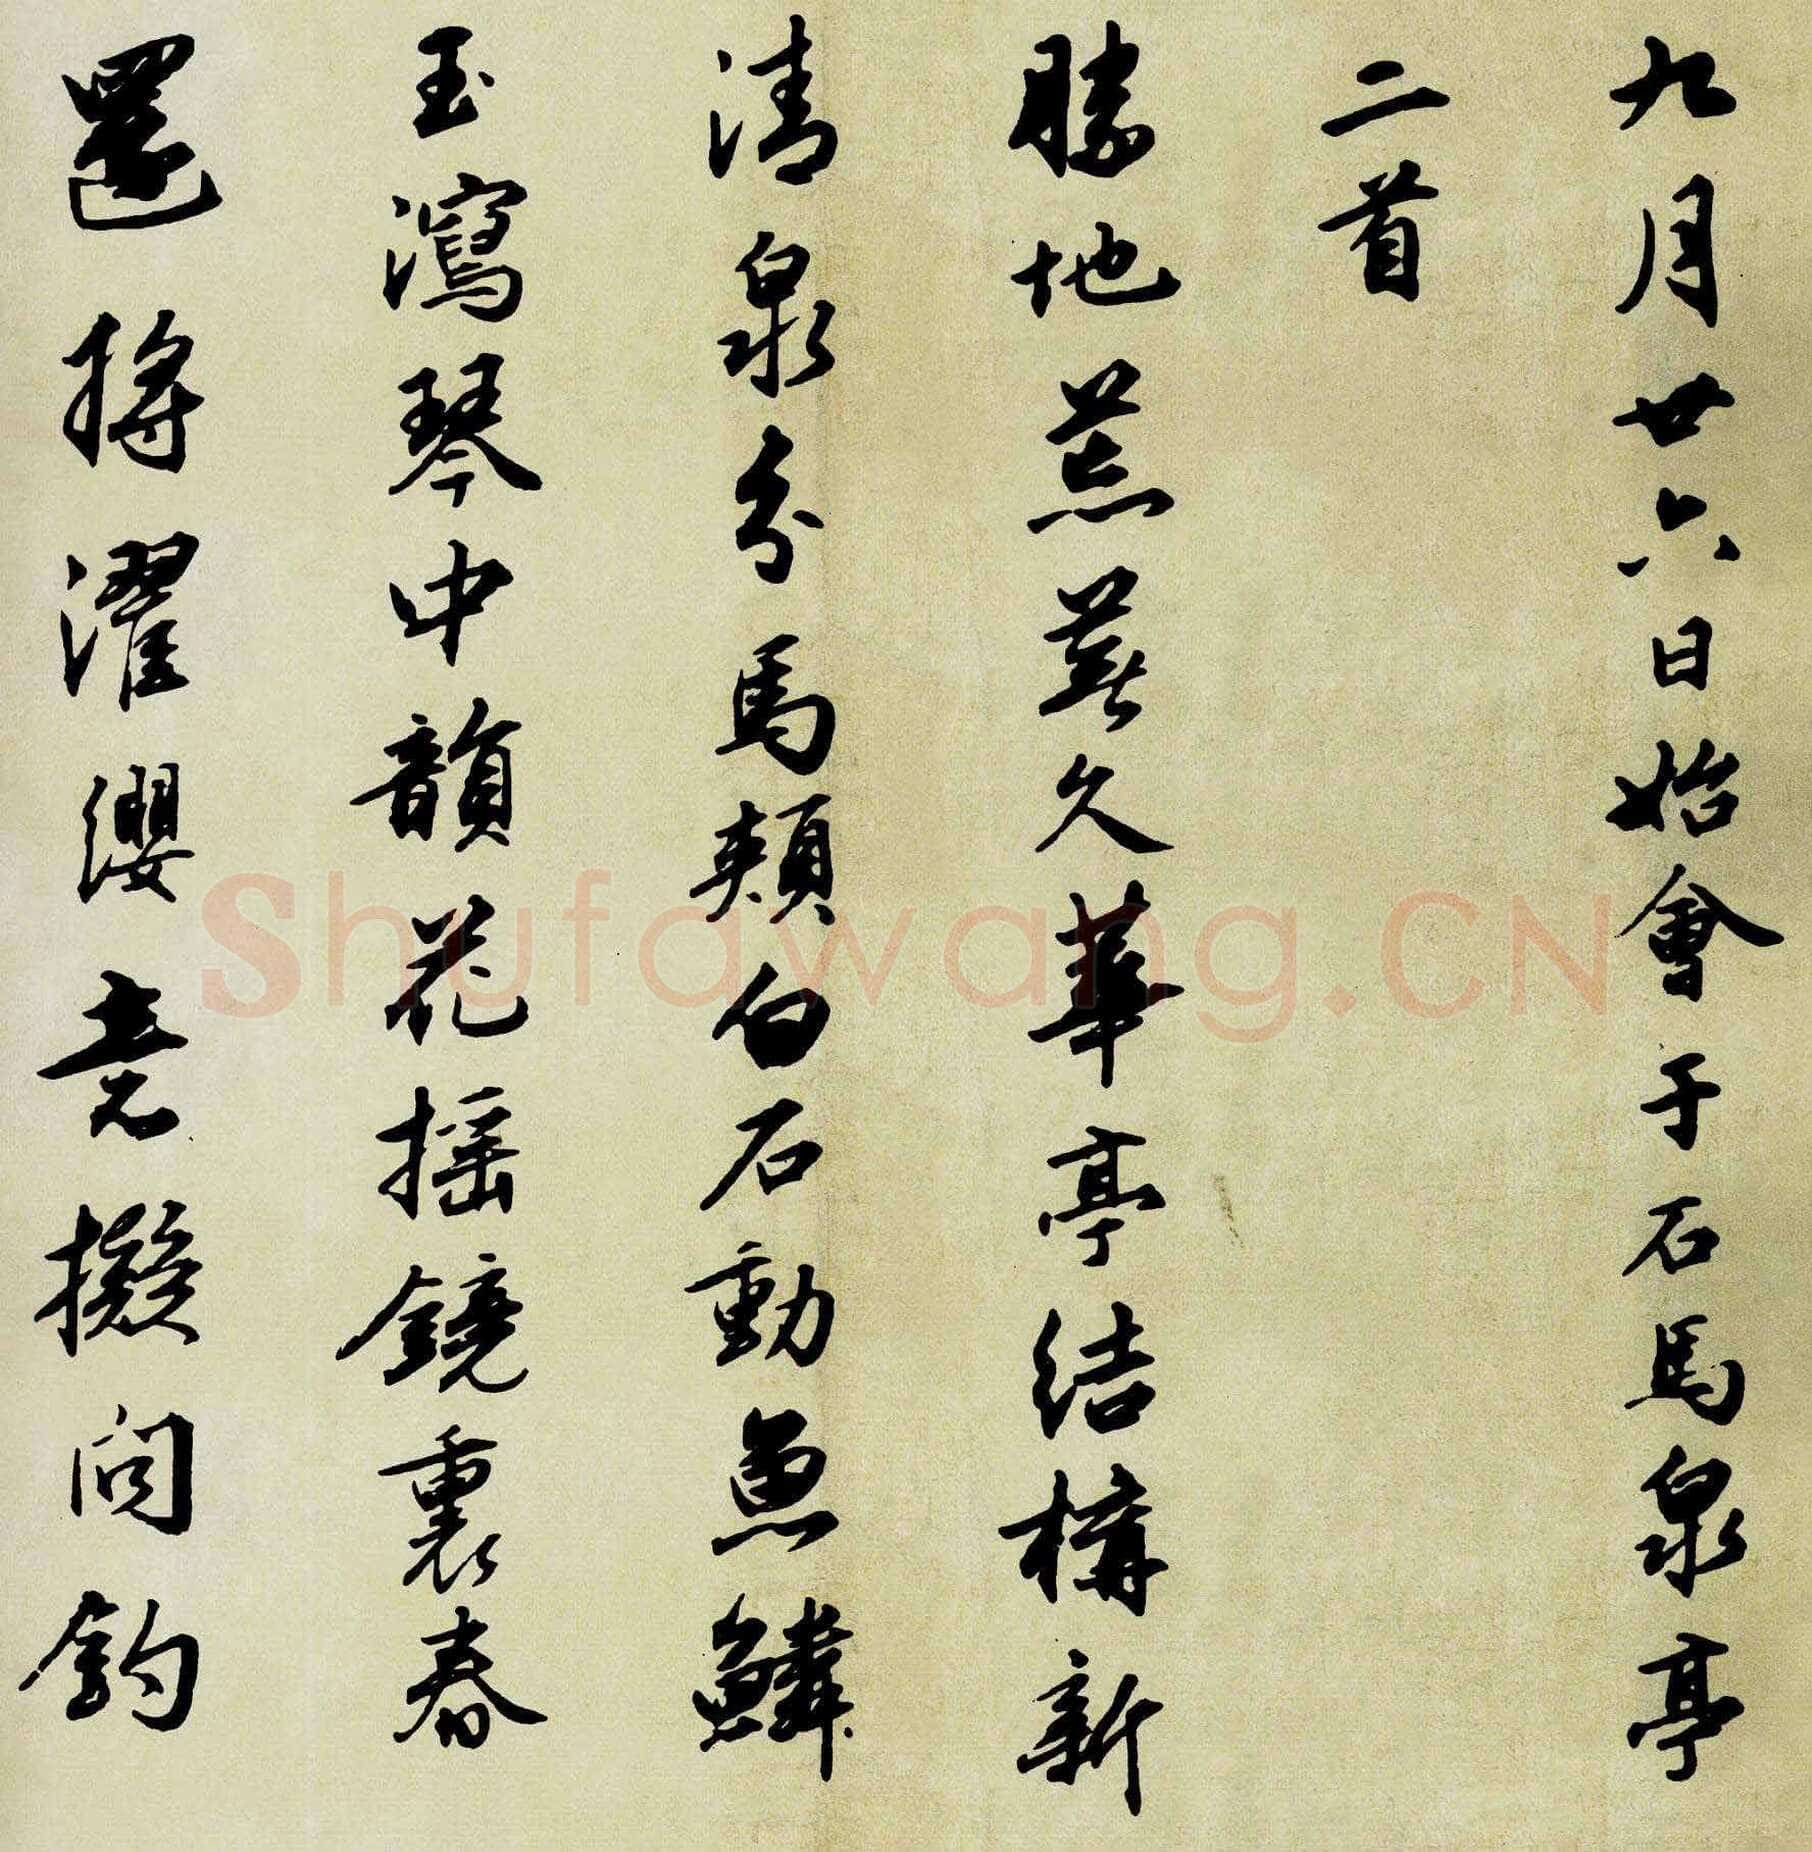 九月廿六日始會于石馬泉亭
二首
勝地荒蕪久華亭結構新
清泉分馬頰白石動魚鱗
玉瀉琴中韻花搖鏡裏春
還將濯纓意擬問釣
Shufawang.CN